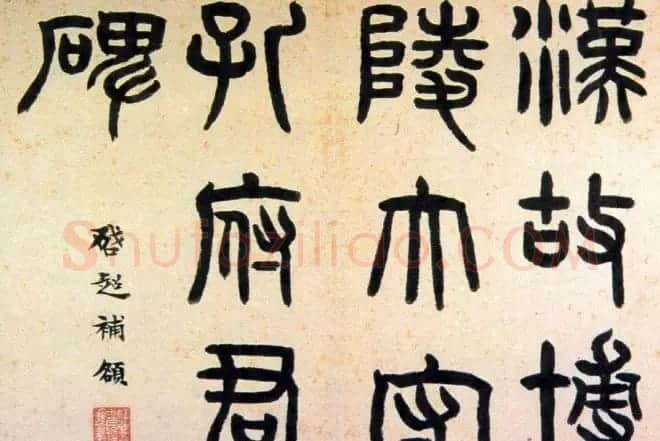 漢故博
陵太守
孔府君
碑
啓超補額
Shufaziliao.COM